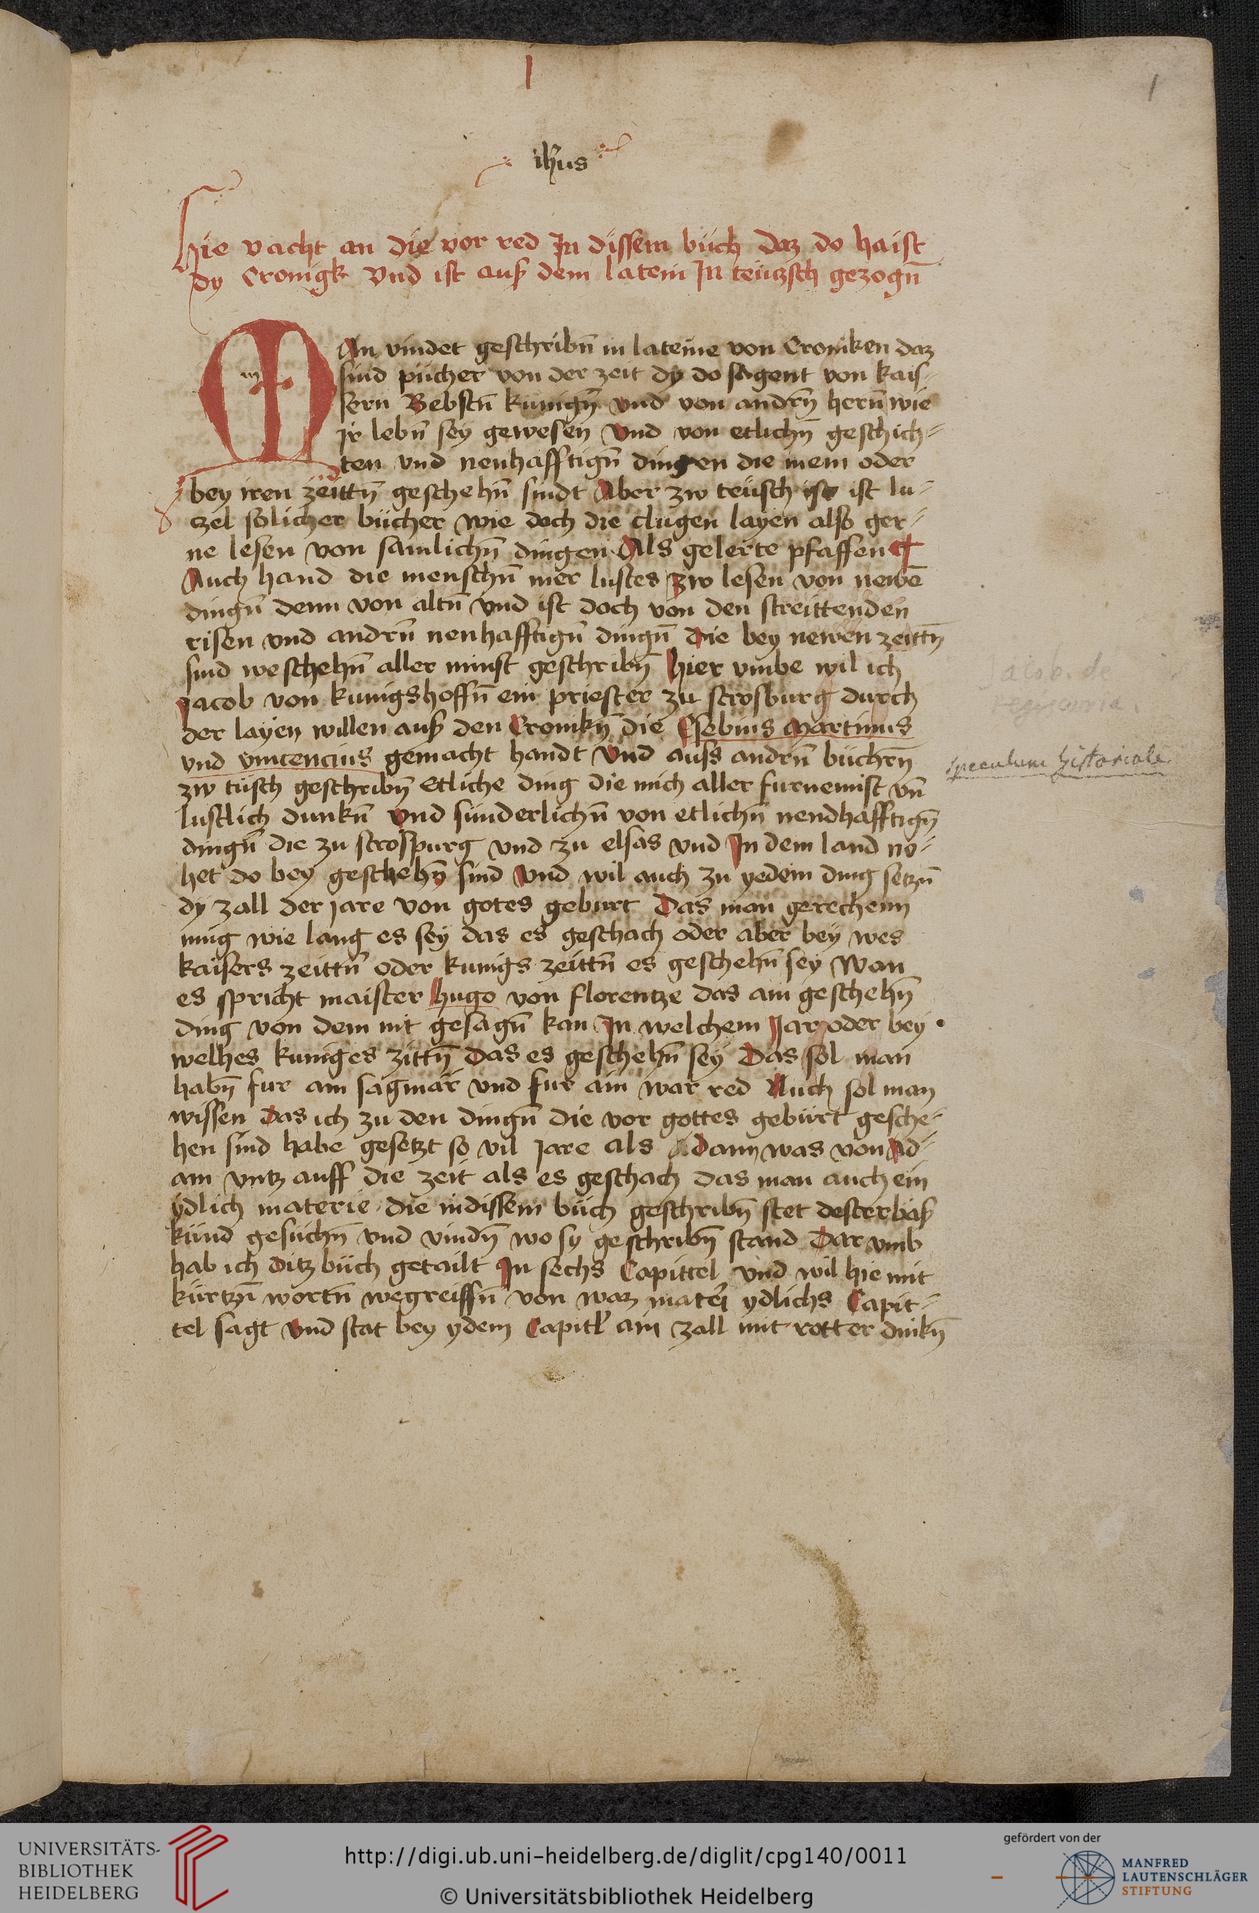 1
1
ihus
Hie vacht an die vor red In dissem büch daz do haist
dy Cronigk Vnd ist auß dem latein In teützsch gezogn̄
MAn vindet geschribn̄ in lateine von Croniken daz
sind pücher von der zeit dy do sagent von kais-
sern Bebstn̄ kunign̄ vnd von andrn̄ hern̄ wie
Ir lebn̄ sey gewesen Vnd von etlichn̄ geschich-
ten vnd nenhafftign̄ dingen die mein oder
bey iren zeittn̄ geschehn̄ sindt Aber zw teüsch ist lu-
czel solicher bücher wie doch die clugen layen also ger-
ne lesen von samlichn̄ dingen Als gelerte pfaffen
Auch hand die menschn̄ mer lustes zw lesen von newē
dingn̄ denn von altn̄ Vnd ist doch von den streittenden
risen vnd andrn̄ nenhafftign̄ dingn̄ die bey newen zeittn̄
sind weschehn̄ aller minst geschribn̄ hier vmbe wil ich
Jacob von kunigshoffn̄ ein priester zu strosburg durch
der layen willen auß den Cronikn̄ die Esebius Martinus
vnd vincencius gemacht handt Vnd auss andrn̄ büchrn̄
zw tüsch geschribn̄ Etliche ding die mich aller furnemist vn̄
lustlich dunkn̄ vnd sünderlichn̄ von etlichn̄ nendhafftign̄
dingn̄ die zu strospurg vnd zu elsas vnd In dem land no-
het do bey geschehn̄ sind Vnd wil auch zu yedem ding setzn̄
dy zall der jare von gotes geburt Das man gerechenn
mug wie lang es sey das es geschach oder aber bey wes
kaisers zeittn̄ oder kunigs zeittn̄ es geschehn̄ sey Wan
es spricht maister hugo von florentze das ain geschehn̄
ding von dem nit gesagn̄ kan In welchem Jar oder bey
welhes kuniges zittn̄ Das es geschehn̄ sey Das sol man
habn̄ fur am sagmär vnd fur ain war red Auch sol man
wissen Das ich zu den dingn̄ die vor gottes gebürt gesche-
hen sind habe gesetzt so vil Jare als dann was von Ad-
am vntz auff die zeit als es geschach das man auch ein
ydlich materie die indissem büch geschribn̄ stet desterbas
künd gesüchn̄ vnd vindn̄ wo sy geschribn̄ stand Dar vmb
hab ich ditz büch getailt In sechs Capittel vnd wil hie mit
kürtzn̄ wortn̄ wegreiffn̄ von waz materi ydlichs Capit-
tel sagt Vnd stat bey ydem Capitl' ain zall mit rotter dinkn̄
speculum historiale
UNIVERSITÄTS-
BIBLIOTHEK
HEIDELBERG
http://digi.ub.uni-heidelberg.de/diglit/cpg140/0011
© Universitätsbibliothek Heidelberg
gefördert von der
MANFRED
LAUTENSCHLÄGER
STIFTUNG